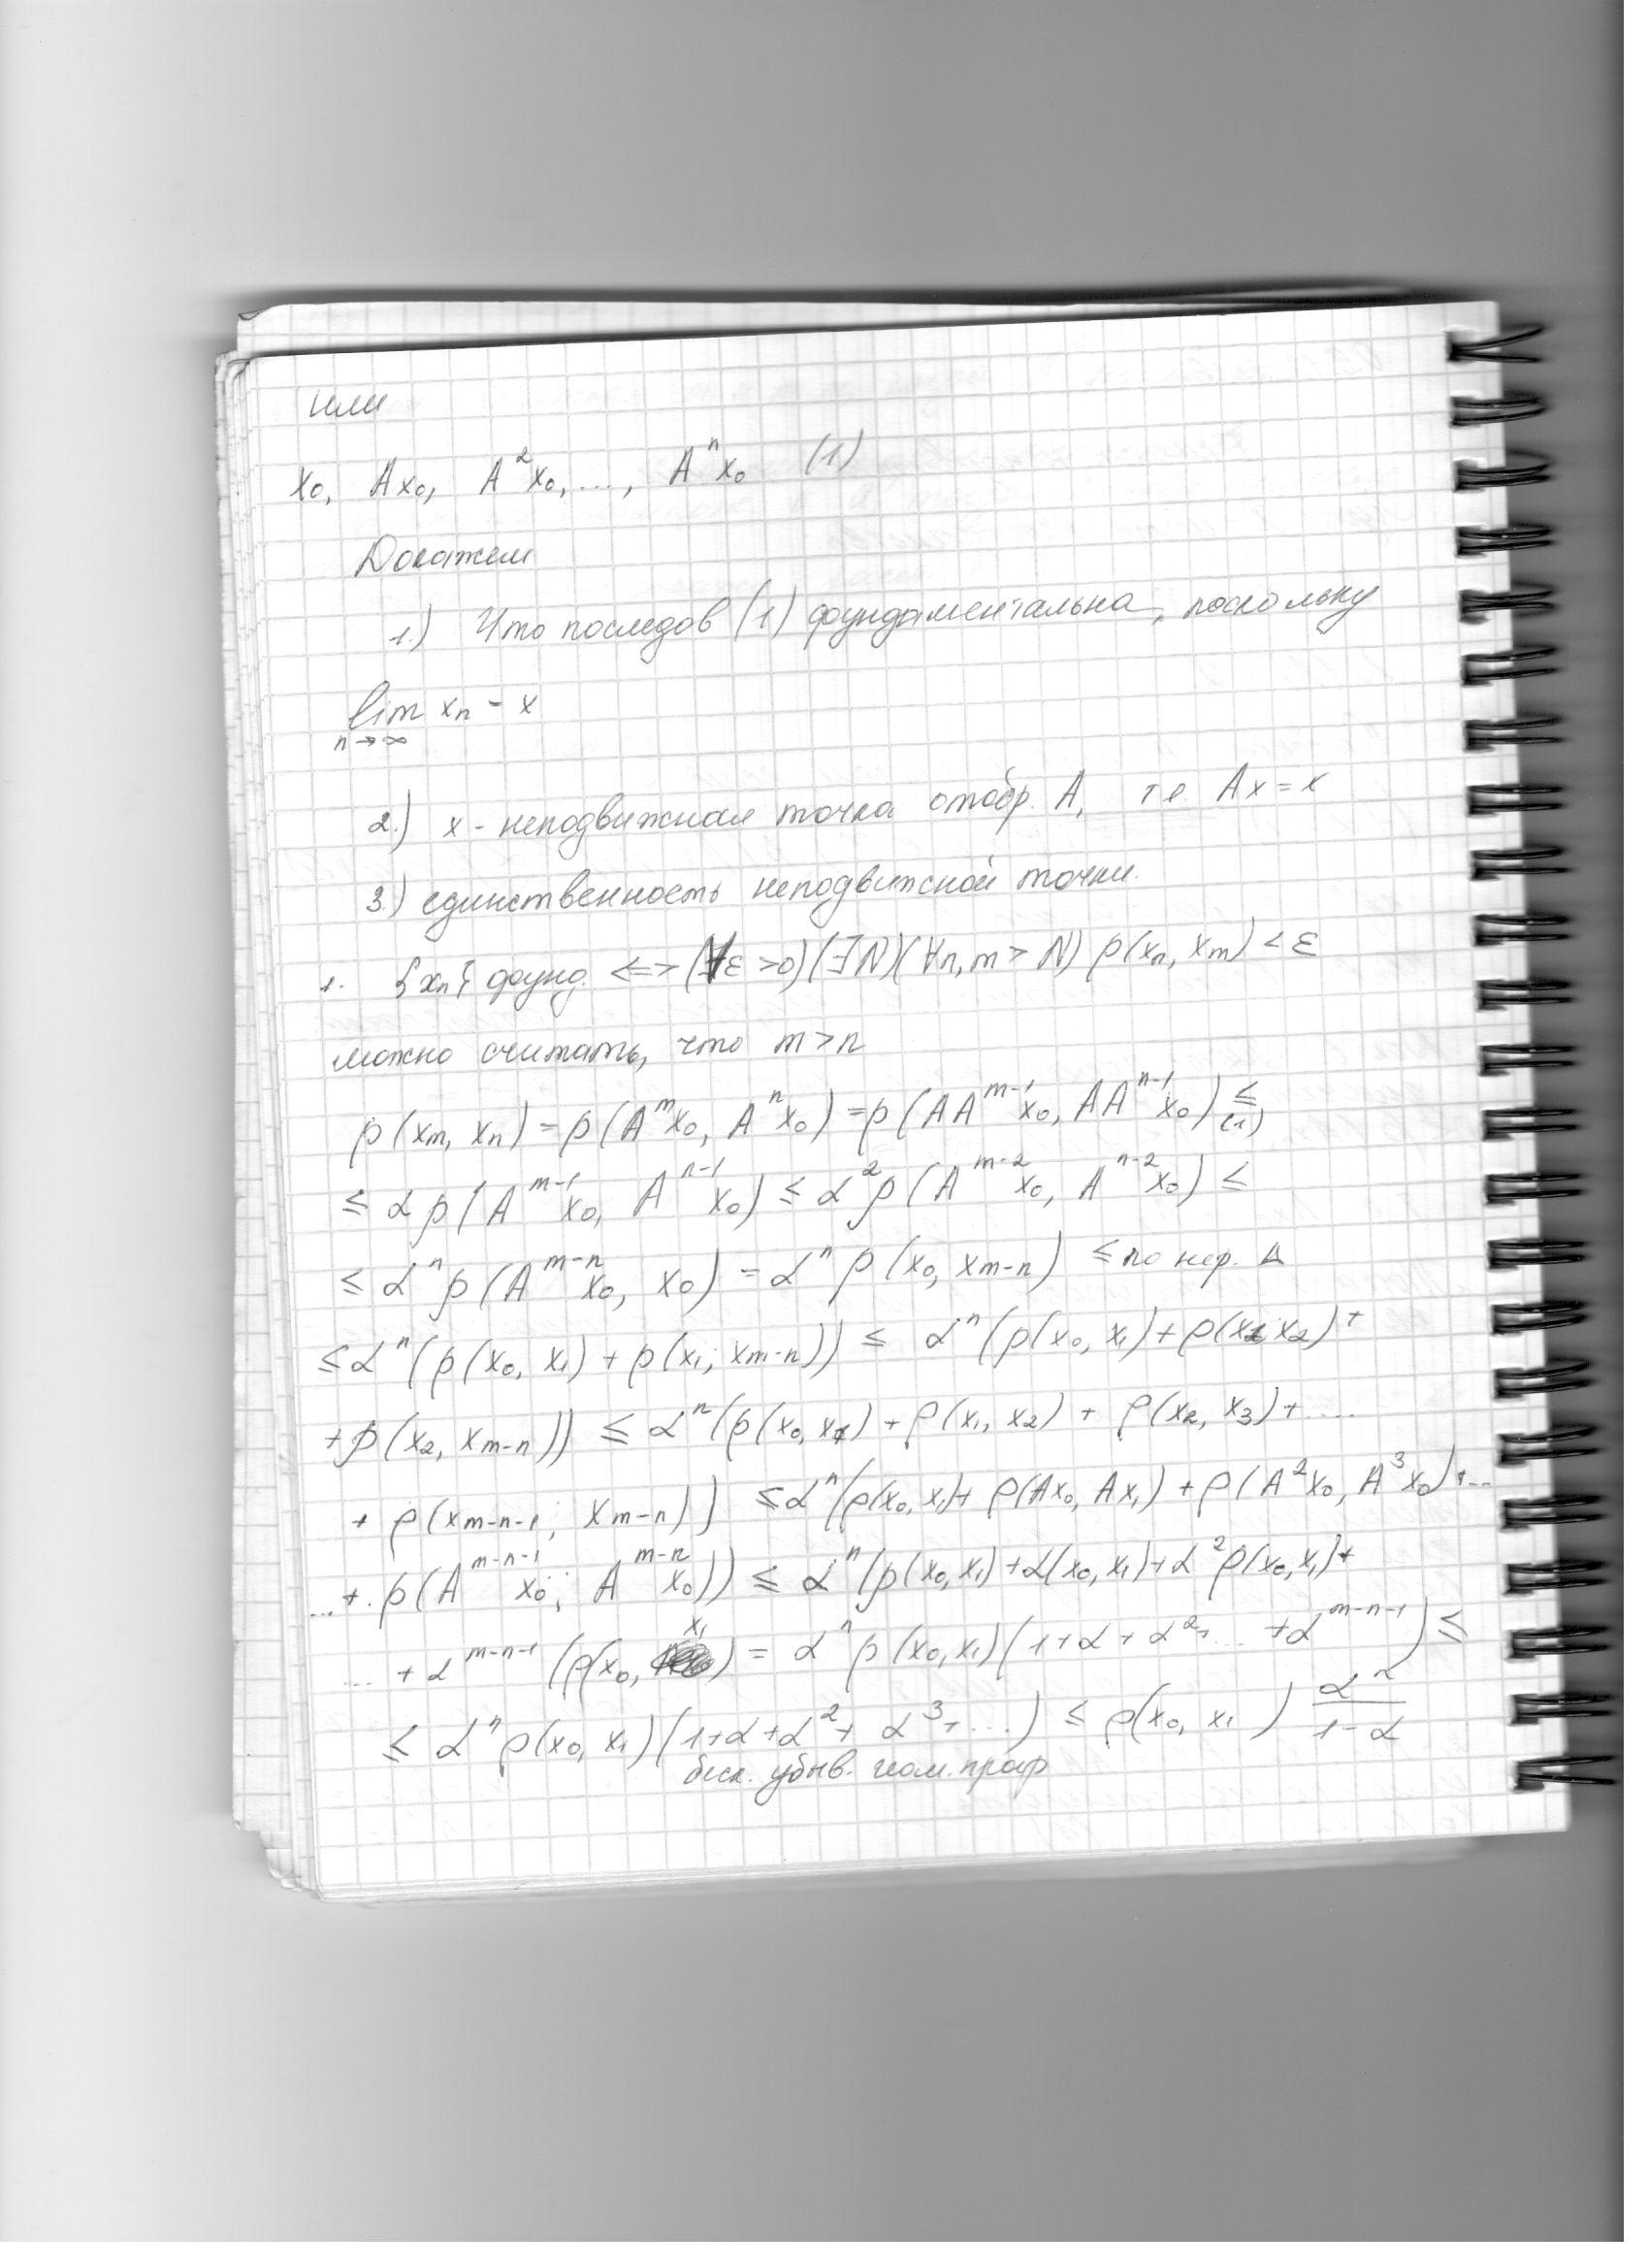 или
x₀, Ax₀, A²x₀, ..., Aⁿx₀ (1)
Докажем
1.) Что последов (1) фундаментальна, поскольку
lim xₙ = x
n→∞
2.) x - неподвижная точка отобр. A, т.е. Ax = x
3.) единственность неподвижной точки.
1. {xₙ} фунд. <=> (∀ε >0)(∃N)(∀n,m > N) ρ(xₙ, xₘ) < ε
можно считать, что m > n
ρ(xₘ, xₙ) = ρ(Aᵐx₀, Aⁿx₀) = ρ(AAᵐ⁻¹x₀, AAⁿ⁻¹x₀) ≤ (1)
≤ αρ(Aᵐ⁻¹x₀, Aⁿ⁻¹x₀) ≤ α²ρ(Aᵐ⁻²x₀, Aⁿ⁻²x₀) ≤
≤ αⁿρ(Aᵐ⁻ⁿx₀, x₀) = αⁿρ(x₀, xₘ₋ₙ) ≤ по нер. Δ
≤ αⁿ(ρ(x₀, x₁) + ρ(x₁, xₘ₋ₙ)) ≤ αⁿ(ρ(x₀, x₁) + ρ(x₁ x₂) +
+ ρ(x₂, xₘ₋ₙ)) ≤ αⁿ(ρ(x₀, x₁) + ρ(x₁, x₂) + ρ(x₂, x₃) + ....
+ ρ(xₘ₋ₙ₋₁, xₘ₋ₙ)) ≤ αⁿ(ρ(x₀, x₁) + ρ(Ax₀, Ax₁) + ρ(A²x₀, A³x₀) + ...
... + ρ(Aᵐ⁻ⁿ⁻¹x₀, Aᵐ⁻ⁿx₀)) ≤ αⁿ(ρ(x₀, x₁) + α(x₀, x₁) + α²ρ(x₀, x₁) +
... + αᵐ⁻ⁿ⁻¹(ρ(x₀, x₁) = αⁿρ(x₀, x₁)(1 + α + α² + ... + αᵐ⁻ⁿ⁻¹) ≤
≤ αⁿρ(x₀, x₁)(1 + α + α² + α³ + ...) ≤ ρ(x₀, x₁) αⁿ/(1 - α)
беск. убыв. геом. прогр